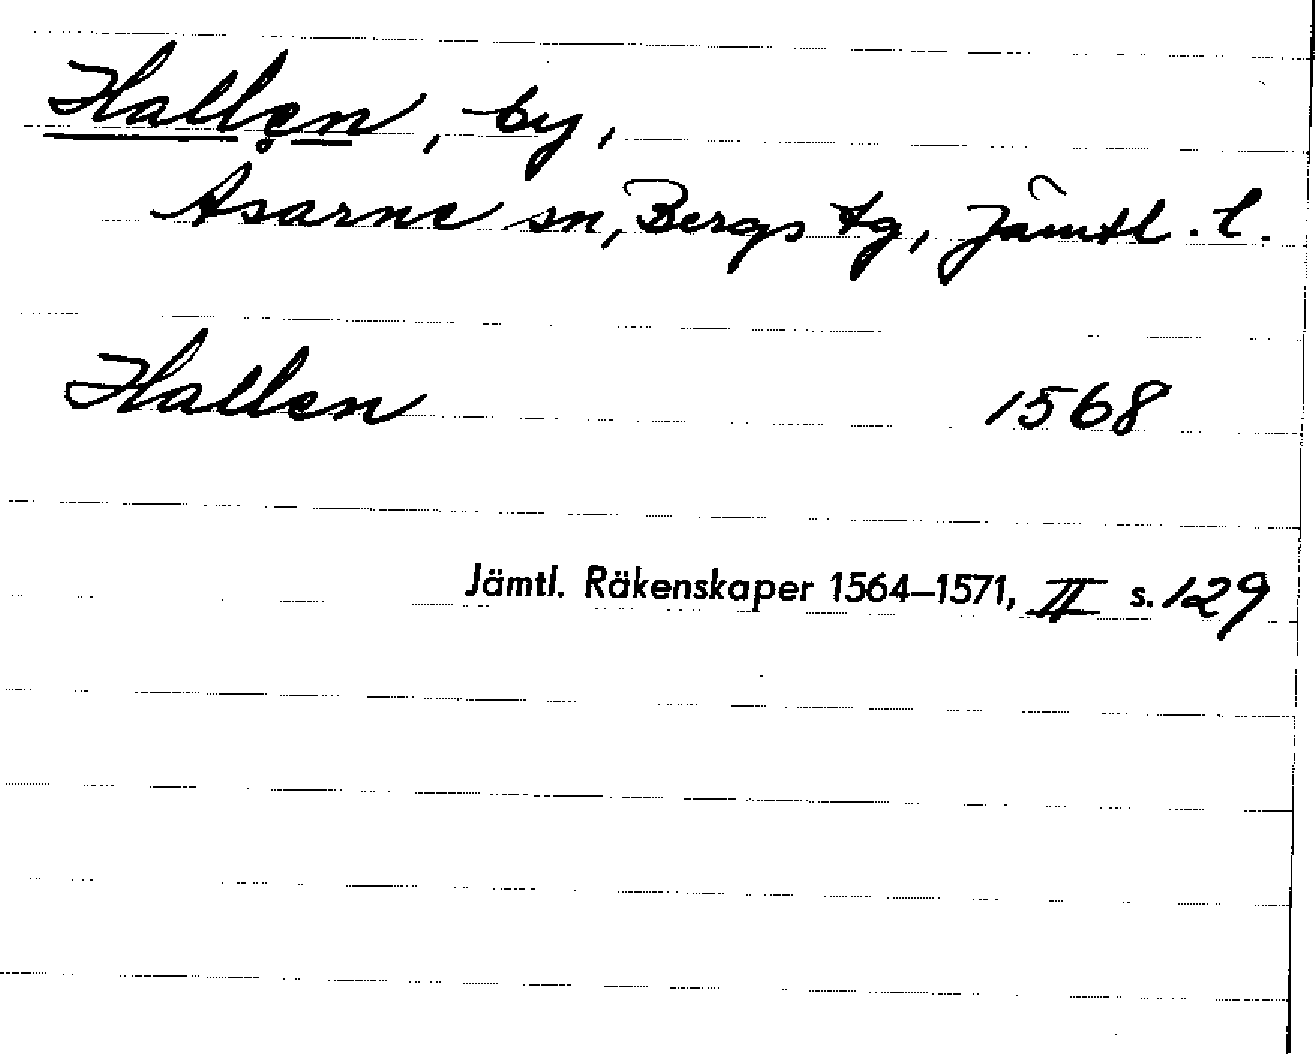 Hallen, by,
Åsarne sn, Bergs tg, Jämtl. l.
Hallen 1568
Jämtl. Räkenskaper 1564–1571, II s. 129